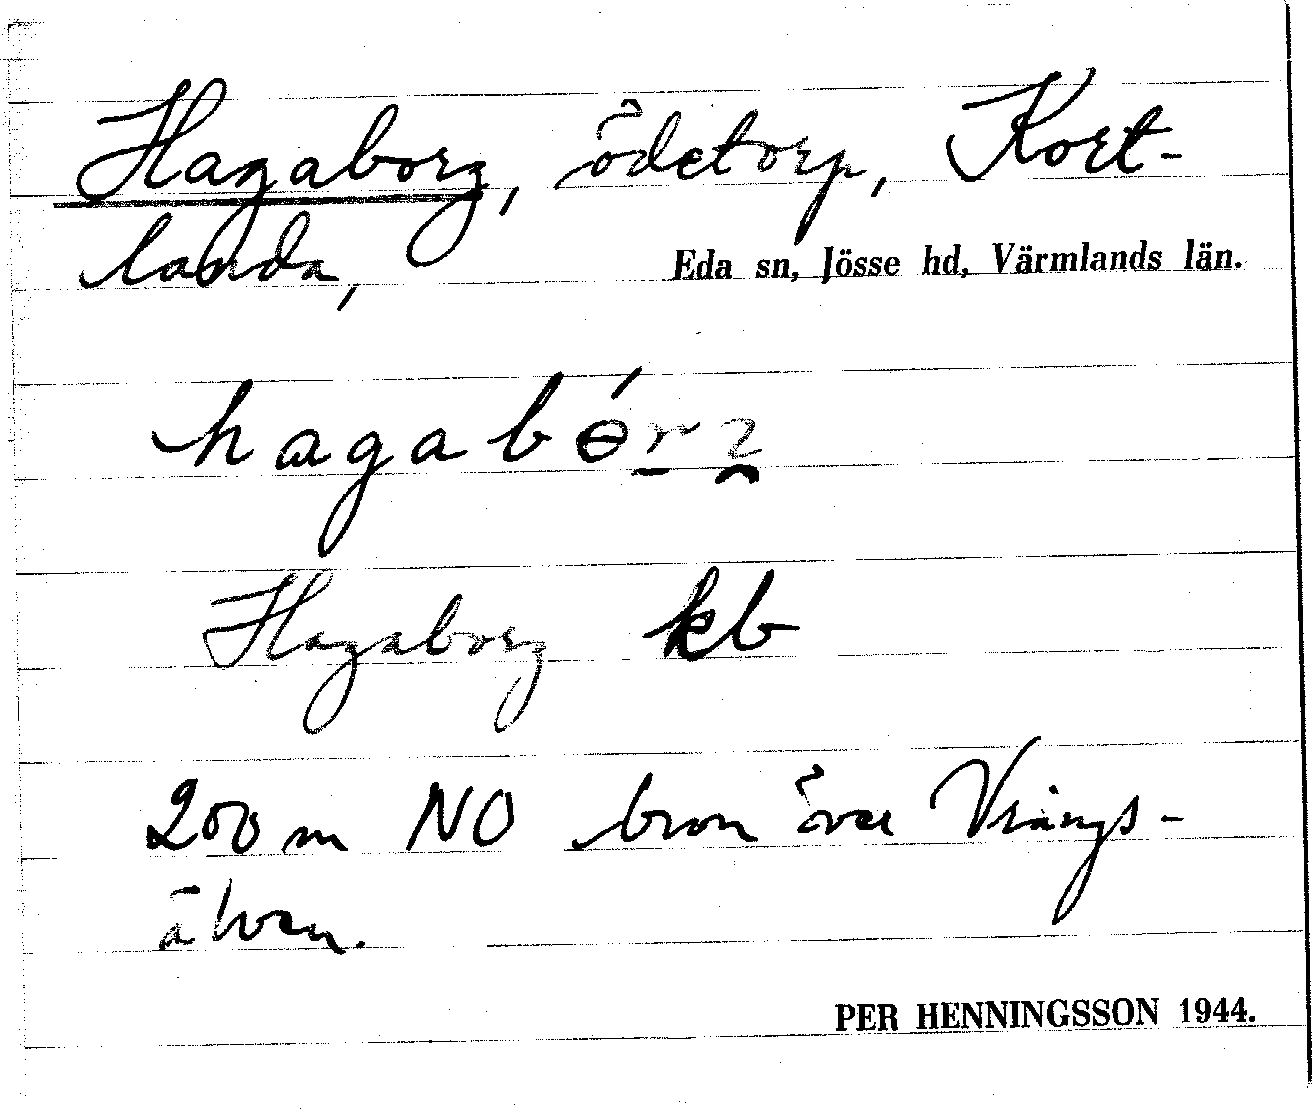 Hagaborg, ödetorp, Kort-
landa,
Eda sn, Jösse hd, Värmlands län.
Hagaborg kb
200 m NO bron över Vrångs-
älven.
PER HENNINGSSON 1944.